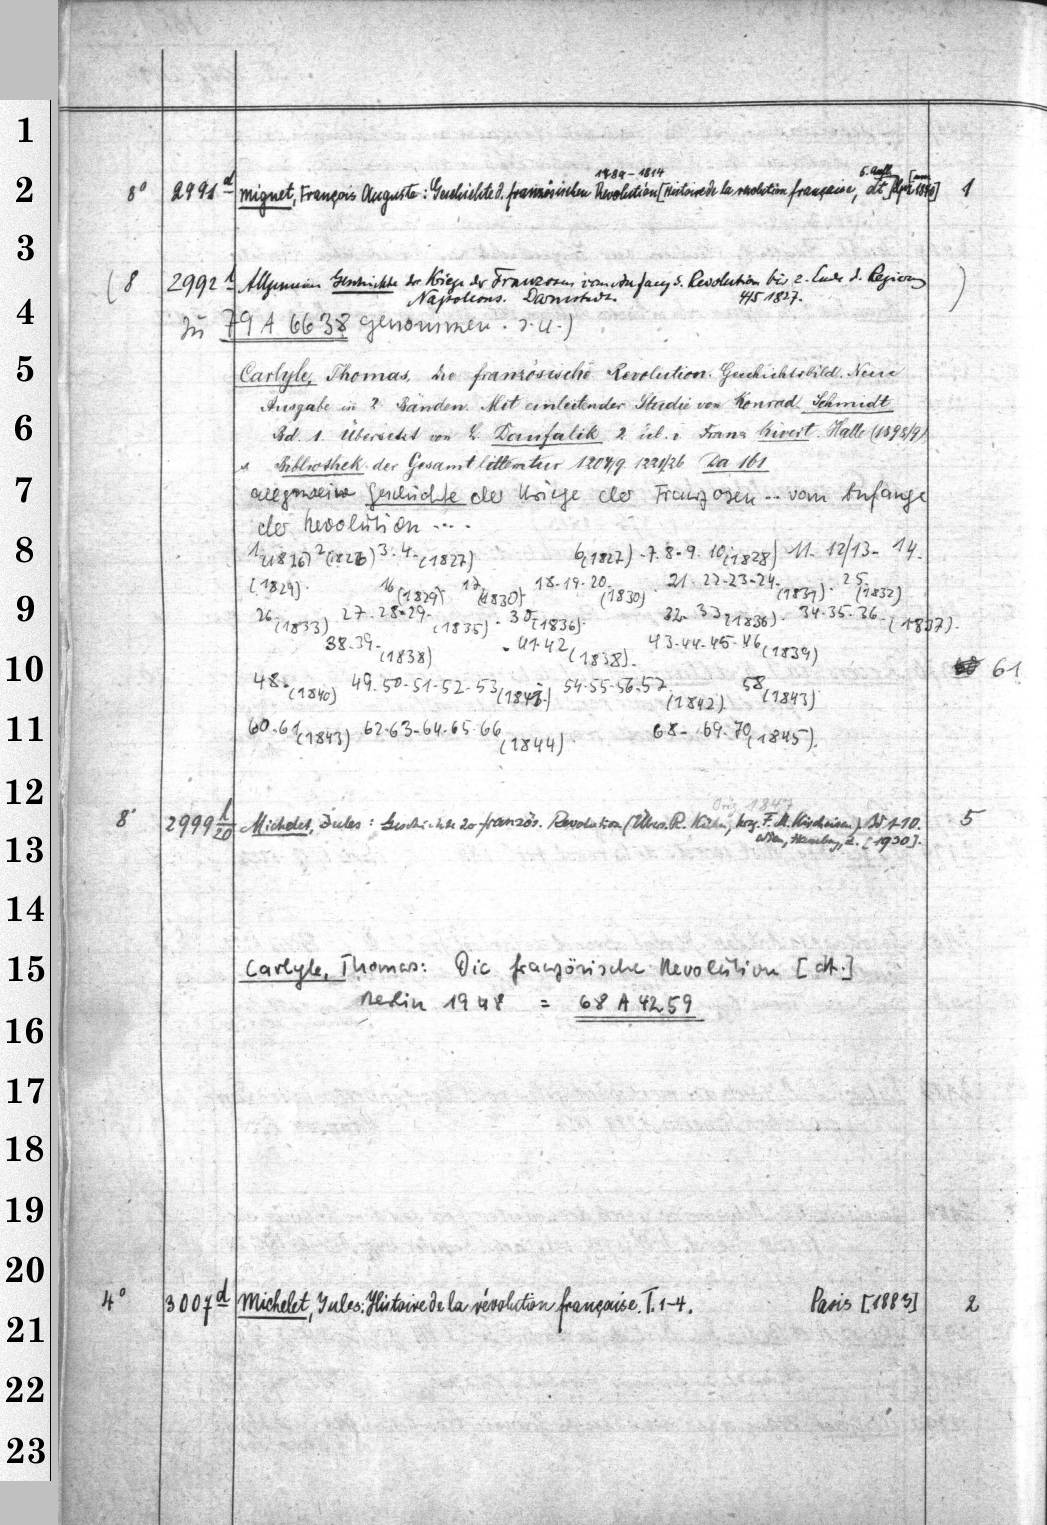 1
2
3
4
5
6
7
8
9
10
11
12
13
14
15
16
17
18
19
20
21
22
23
1789-1814 5. Aufl. [um
8° 2991 d Mignet, François Auguste: Geschichte d. französischen Revolution [Histoire de la revolution française, dt.] Lpz 1890] 1
(8 2992 Allgemeine Geschichte der Kriege der Franzosen vom Anfang d. Revolution bis z. Ende d. Regierg )
Napoleons. Darmstadt. 1827.
zu 79 A 6638 genommen. s.u.)
Carlyle, Thomas, Die französische Revolution. Geschichtsbild. Neue
Ausgabe in 2 Bänden. Mit einleitender Studie von Konrad Schmidt
Bd. 1. Übersetzt von 2 Franz Sivert. Halle (1898/9)
Bibliothek der Gesamtlitteratur 1204/9 1221/26 Da 161
allgemeine Geschichte der Kriege der Franzosen ... vom Anfange
der Revolution ....
1 (1826) 2 (1826) 3. 4. (1827) 6 (1827) - 7. 8 - 9. 10 (1828) 11. 12/13 - 14.
(1829). 16 (1829) 17 (1830) 18. 19. 20 (1830). 21. 22-23-24 (1831). 25 (1832)
26 (1833) 27. 28-29. (1835). 30 (1836). 32. 33 (1836). 34. 35. 36. (1837).
38. 39. (1838) 41. 42 (1838). 43-44-45-46 (1839)
61
48. (1840) 49. 50-51-52-53 54-55-56-57 (1842) 58 (1843)
60-61 (1843) 62-63-64-65-66 (1844). 68 - 69. 70 (1845).
Orig. 1847
8° 2999 1/20 Michelet, Jules: Geschichte der französ. Revolution (Übers. R. Kühn, hrg. F. M. Kircheisen) Bd 1-10. 5
Wien, Hamburg, Z. [1930].
Carlyle, Thomas: Die französische Revolution [dt.]
Berlin 1948 = 68 A 4259
4° 3007 d Michelet, Jules: Histoire de la révolution française. T. 1-4. Paris [1883] 2